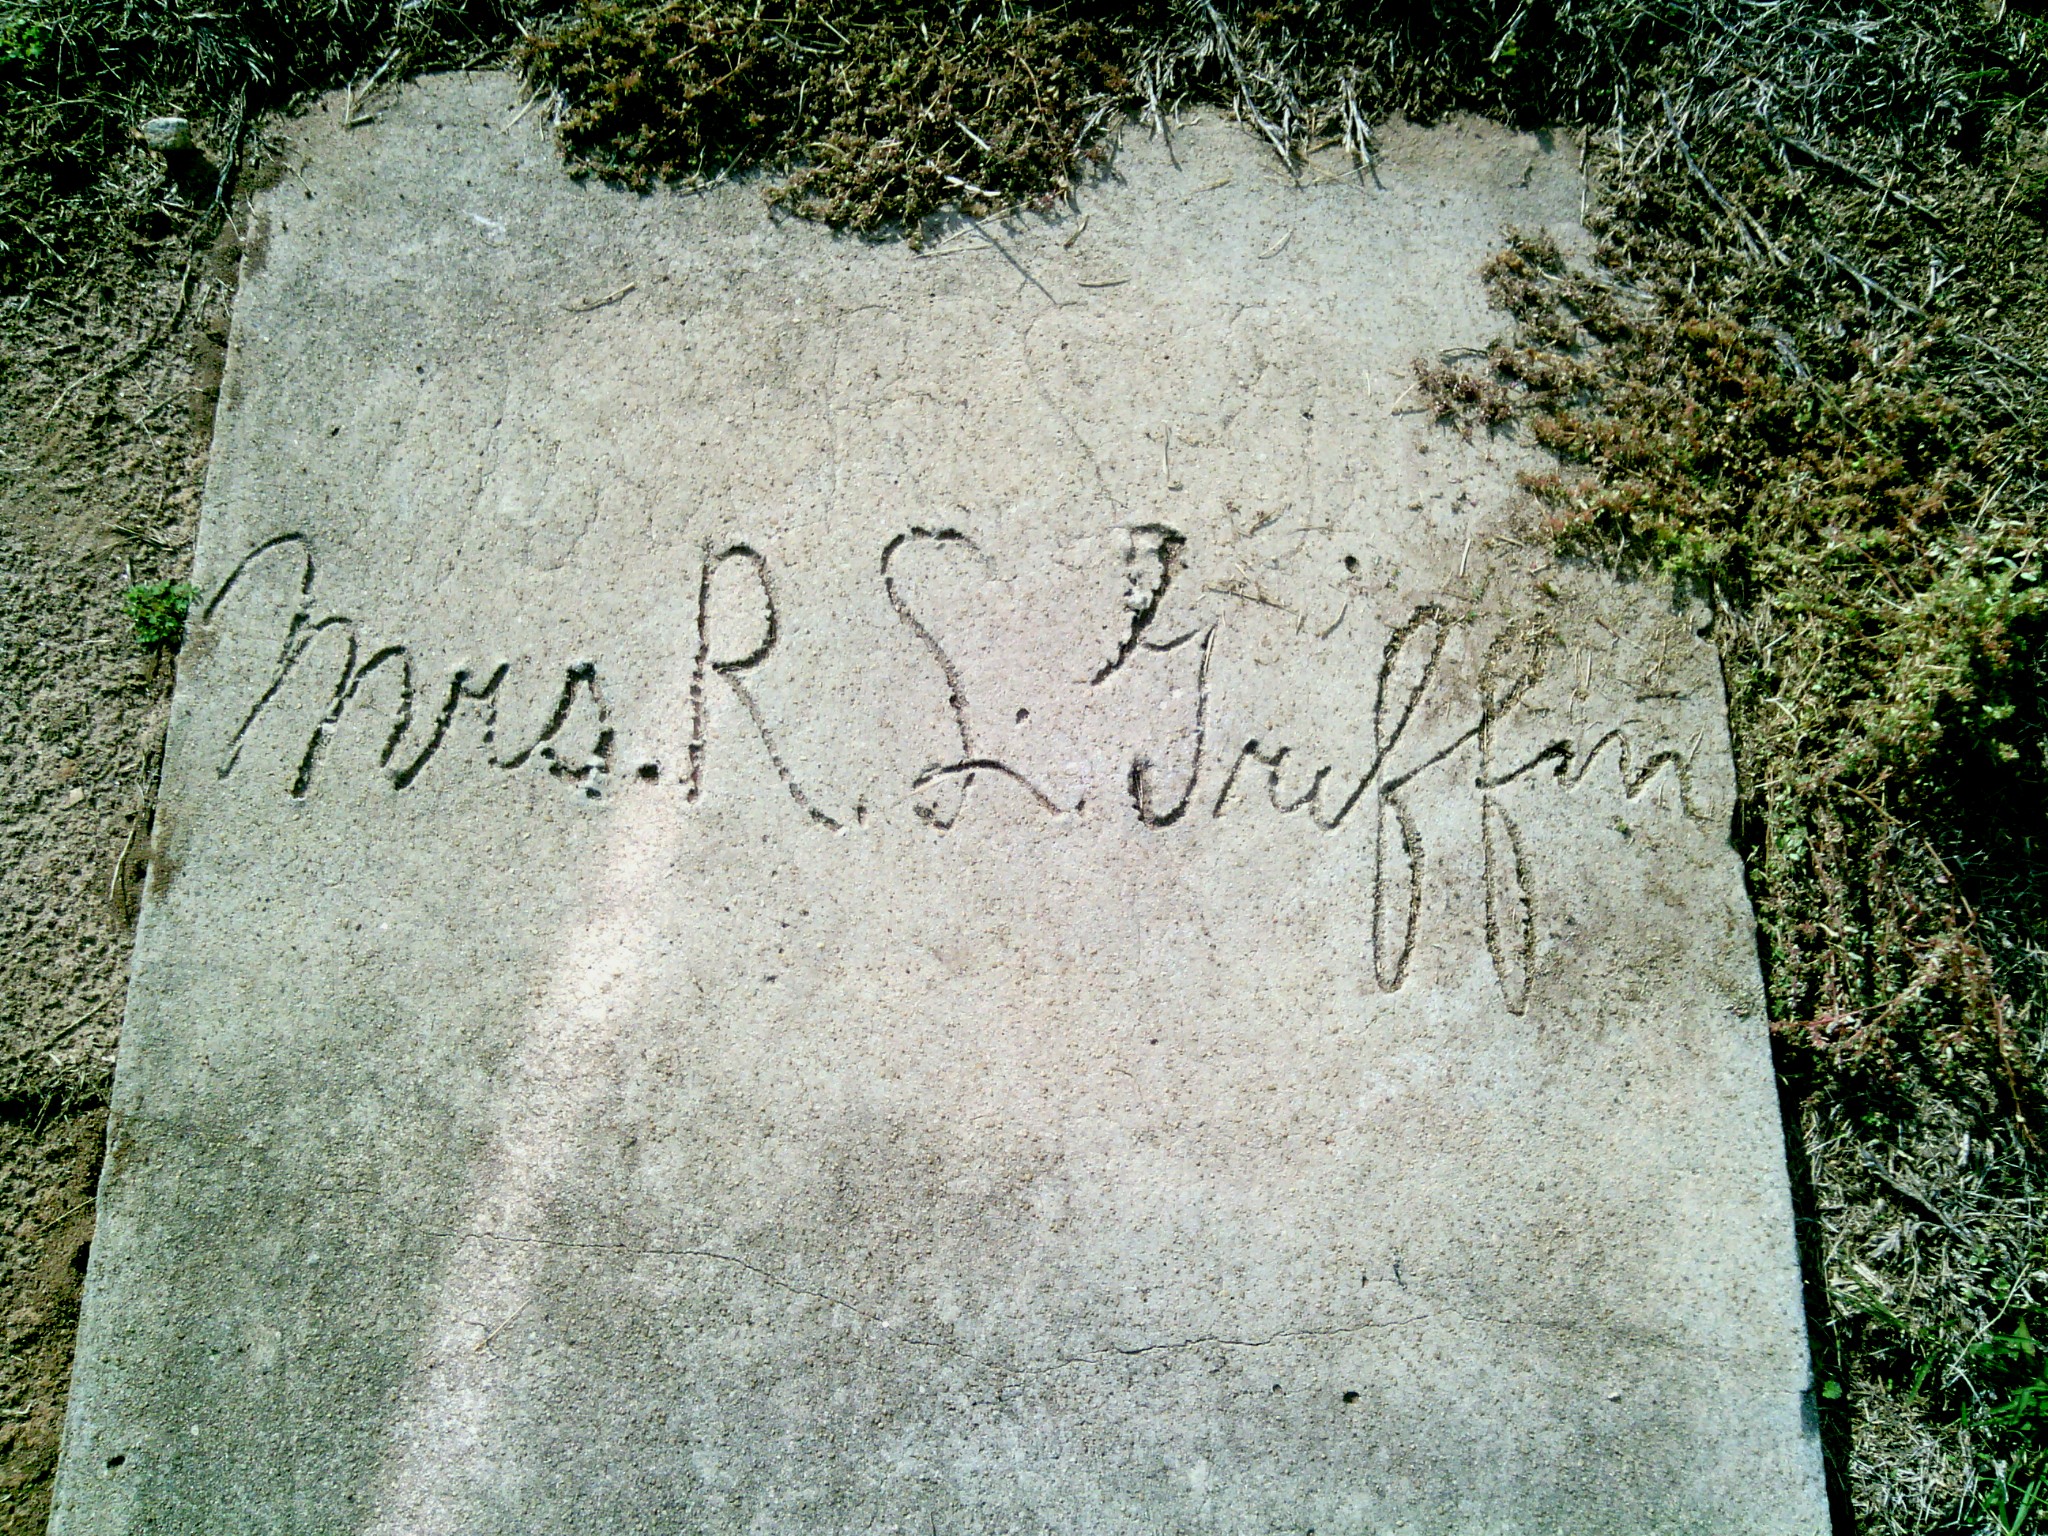 Mrs. R. L. Griffin